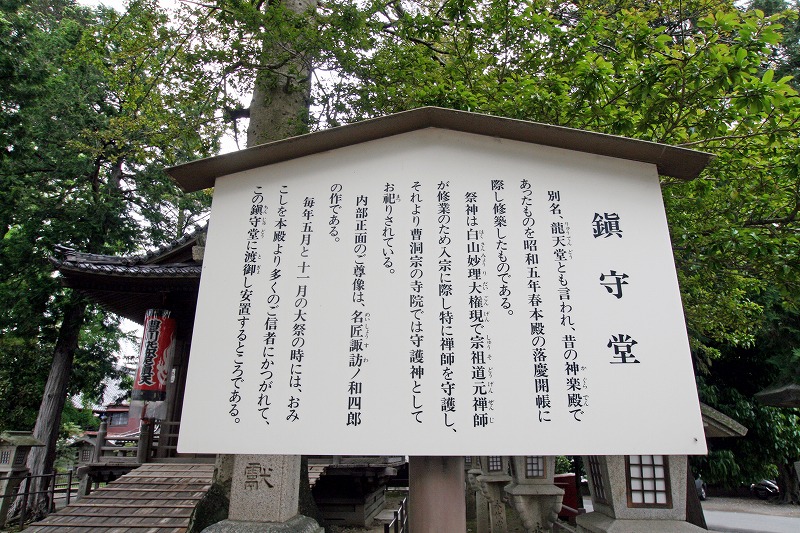 鎮守堂
別名、龍天堂とも言われ、昔の神楽殿で
あったものを昭和五年春本殿の落慶開帳に
際し修築したものである。
祭神は白山妙理大権現で宗祖道元禅師
が修業のため入宗に際し特に禅師を守護し、
それより曹洞宗の寺院では守護神として
お祀りされている。
内部正面のご尊像は、名匠諏訪ノ和四郎
の作である。
毎年五月と十一月の大祭の時には、おみ
こしを本殿より多くのご信者にかつがれて、
この鎮守堂に渡御し安置するところである。
献